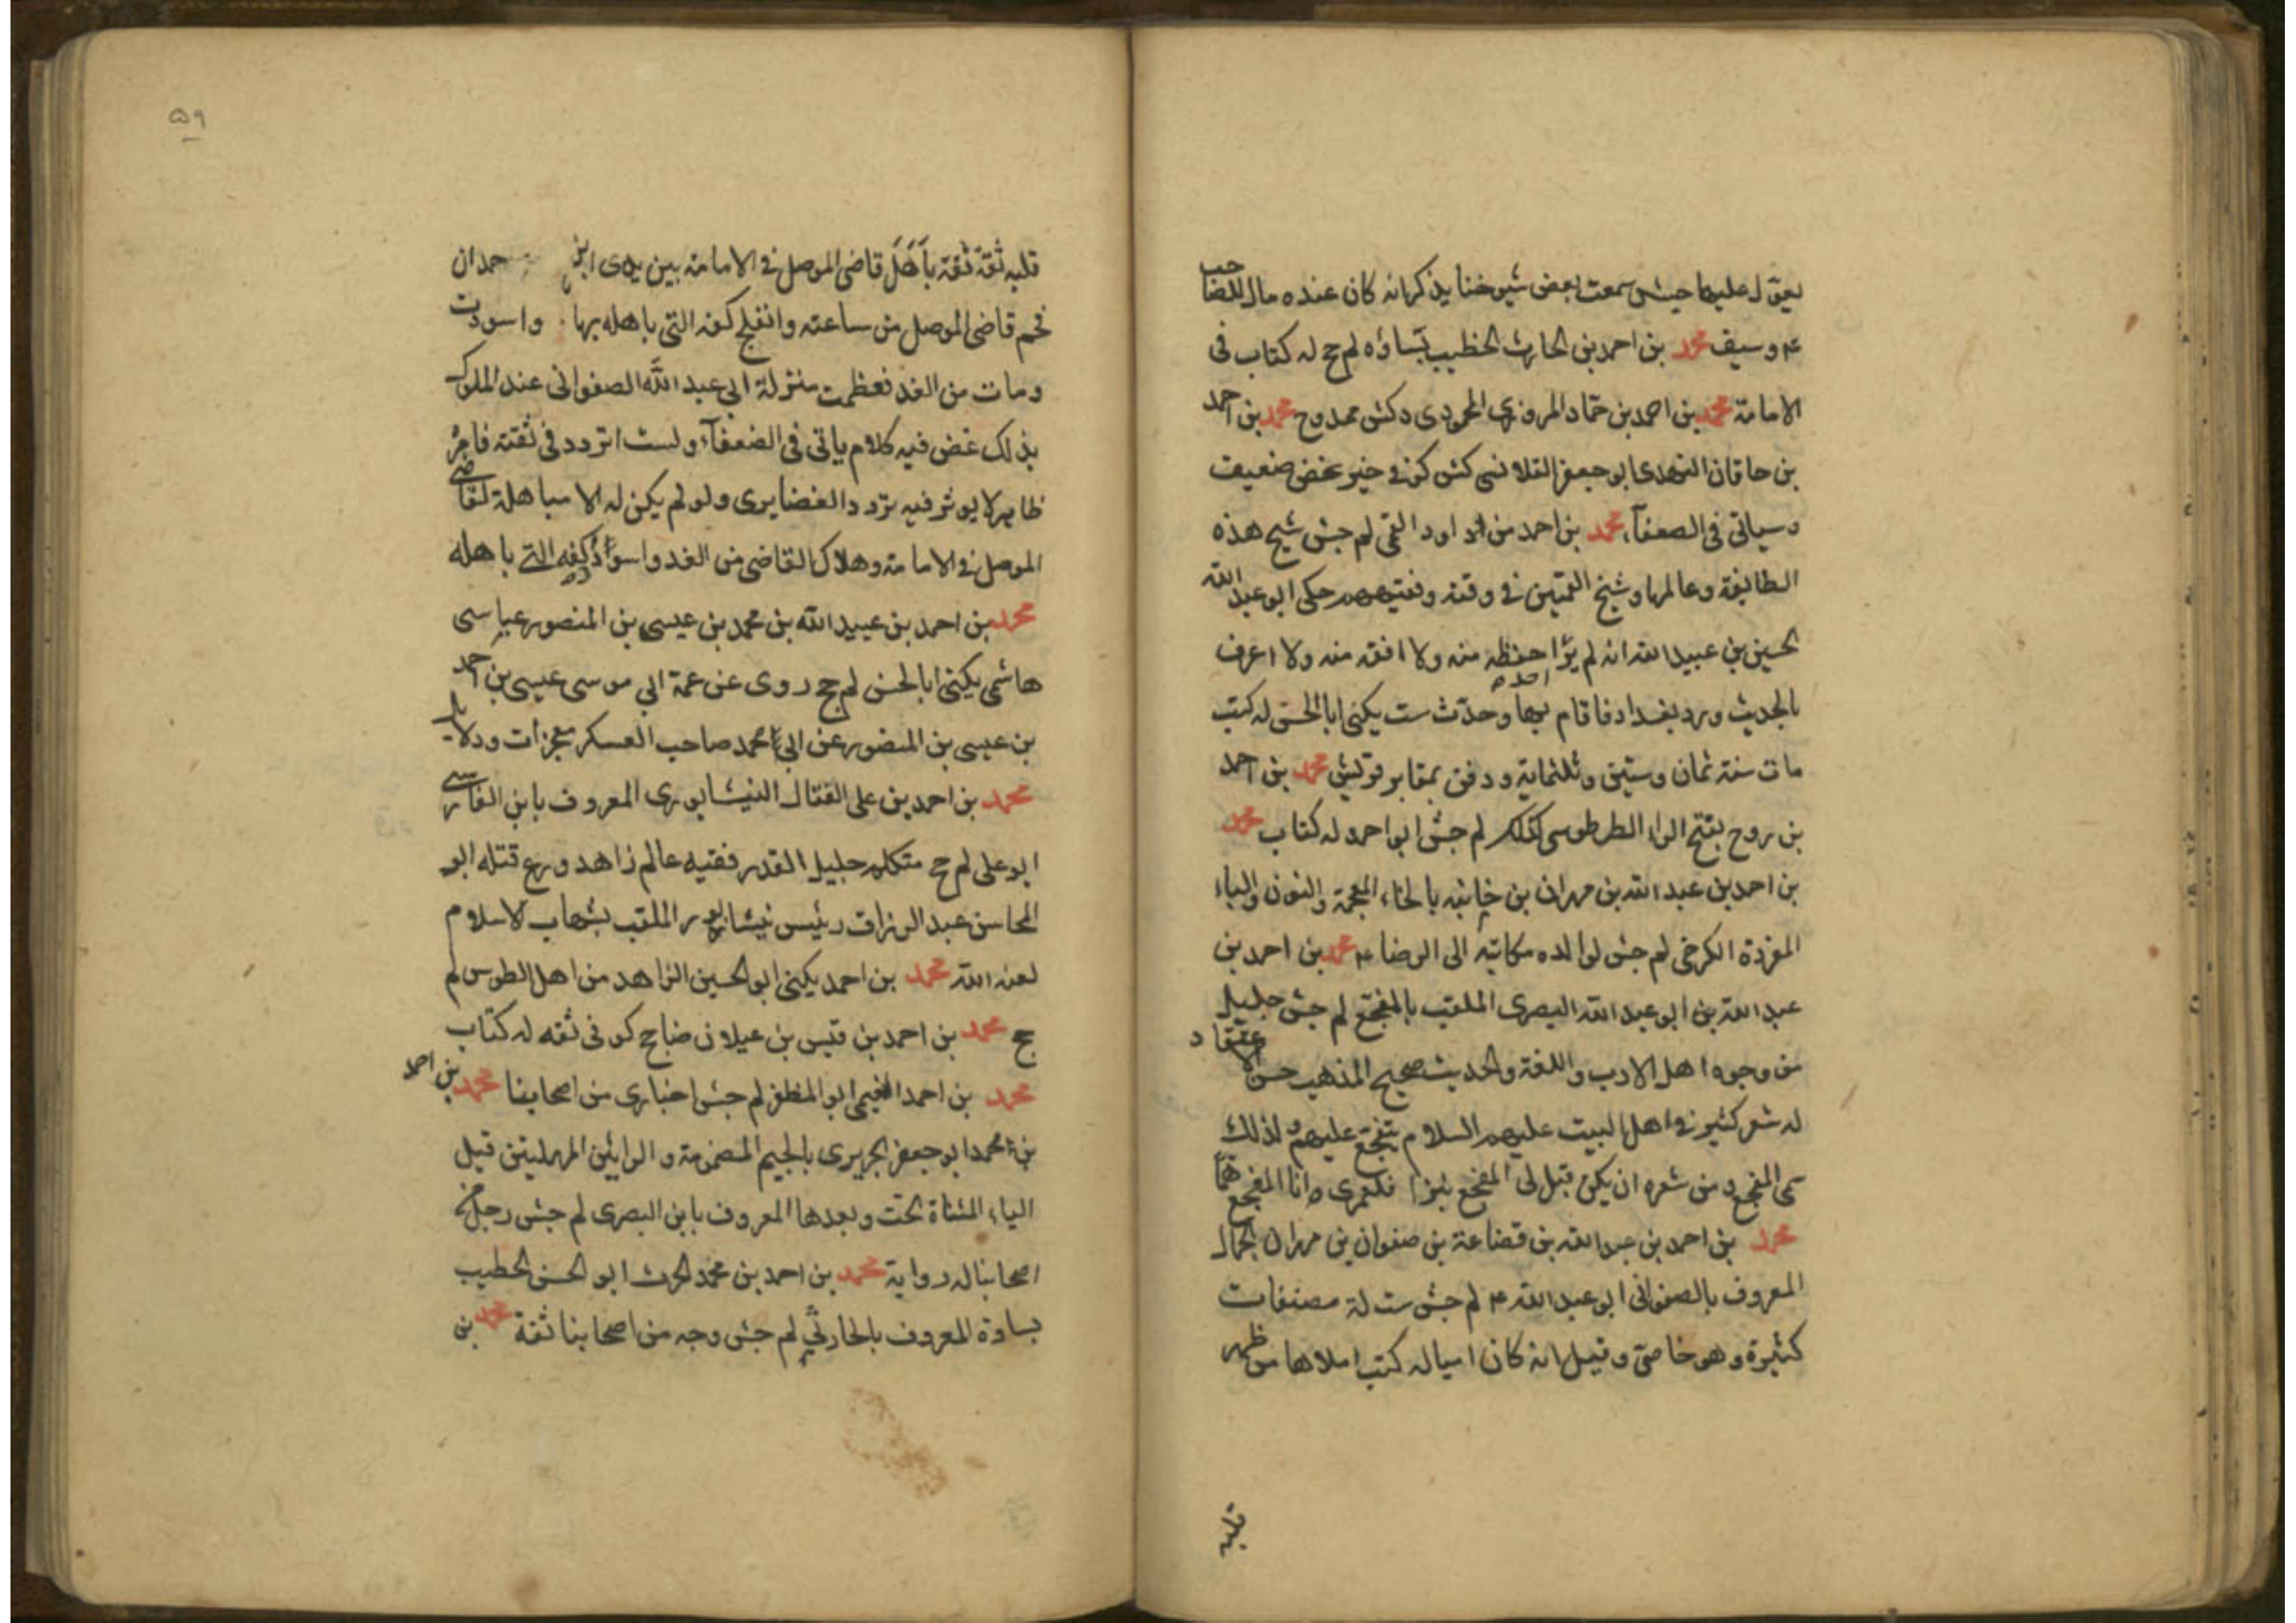 يعول عليها جش سمعت بعض شيوخنا يذكر انه كان عنده مال للصاحب
ع وسيف محمد بن احمد بن الحارث الخطيب بساوه لم جخ له كتاب في
الامامة محمد بن احمد بن حماد المروزي المحمودي د كش ممدوح محمد بن احمد
بن خاقان النهدي ابو جعفر القلانسي كش كوفي خير غض ضعيف
وسياتي في الضعفآء محمد بن احمد بن داود القمي لم جش شيخ هذه
الطائفة وعالمها وشيخ القميين في وقته وفقيههم حكى ابو عبد الله
الحسين بن عبيد الله انه لم ير احدا احفظ منه ولا افقه منه ولا اعرف
بالحديث ورد بغداد فاقام بها وحدث ست يكنى ابا الحسن له كتب
مات سنة ثمان وستين وثلثماية ودفن بمقابر قريش محمد بن احمد
بن روح بفتح الراء الطرطوسي كذلك لم جش ابو احمد له كتاب محمد
بن احمد بن عبد الله بن مهران بن خانبه بالخاء المعجمة والنون والباء
المفردة الكرخي لم جش لوالده مكاتبة الى الرضا ع محمد بن احمد بن
عبد الله بن ابو عبد الله البصري الملقب بالمفجع لم جش جليل
من وجوه اهل الادب واللغة والحديث صحيح المذهب حسن الاعتقاد
له شعر كثير في اهل البيت عليهم السلام يتفجع عليهم ولذلك
سمى المفجع ومن شعره ان يكن قبل لي المفجع نبزا فلعمري انا المفجع هما
محمد بن احمد بن عبد الله بن قضاعة بن صفوان بن مهران الجمال
المعروف بالصفواني ابو عبد الله ع لم جش ست له مصنفات
كثيرة وهو خاصي وقيل انه كان اميا له كتب املاها من ظهر
قلبه
٥٩
قلبه ثقة ثقة باهل قاضي الموصل في الامامة بين يدي ابن حمدان
فحم قاضي الموصل من ساعته وانتفخ كفه التي باهله بها واسودت
ومات من الغد فعظمت منزلة ابي عبد الله الصفواني عند الملوك
بذلك غض فيه كلام ياتي في الضعفآء ولست اتردد في ثقته فامره
ظاهر لا يوثر فيه تردد الغضايري ولو لم يكن له الا مباهلة لقاضي
الموصل في الامامة وهلاك القاضي من الغد واسواد كفه التي باهله
محمد بن احمد بن عبيد الله بن محمد بن عيسى بن المنصور عباسي
هاشمي يكنى ابا الحسن لم جخ روى عن عمه ابي موسى عيسى بن احمد
بن عيسى بن المنصور عن ابي محمد صاحب العسكر معجزات ودلايل
محمد بن احمد بن علي الفتال النيشابوري المعروف بابن الفارسي
ابو علي لم جخ متكلم جليل القدر فقيه عالم زاهد ورع قتله ابو
المحاسن عبد الرزاق رئيس نيشابور الملقب بشهاب الاسلام
لعنه الله محمد بن احمد يكنى ابو الحسين الزاهد من اهل الطوس لم
جخ محمد بن احمد بن قيس بن عيلان ضا جخ كوفي ثقه له كتاب
محمد بن احمد النعيمي ابو المظفر لم جش اخباري من اصحابنا محمد بن احمد
بن محمد ابو جعفر الجريري بالجيم المضمومة والرايين المهملتين قبل
الياء المثناة تحت وبعدها المعروف بابن البصري لم جش رجل من
اصحابنا له رواية محمد بن احمد بن محمد الحرث ابو الحسن الخطيب
بساوة المعروف بالحارثي لم جش وجه من اصحابنا ثقة محمد بن